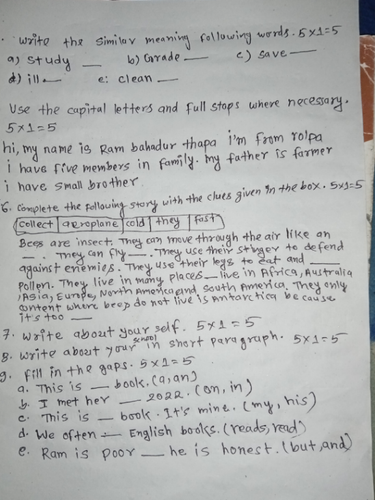 . Write the similar meaning following words. 5x1=5
a) study __ b) Grade __ c) save __
d) ill __ e: clean __
Use the capital letters and full stops where necessary.
5x1=5
hi, my name is Ram bahadur thapa i'm from rolpa
i have five members in family. my father is farmer
i have small brother
6. Complete the following story with the clues given in the box. 5x1=5
collect | aeroplane | cold | they | fast
Bees are insect. They can move through the air like an
__. They can fly __. They use their stinger to defend
against enemies. They use their legs to eat and __
Pollen. They live in many places __ live in Africa, Australia
, Asia, Europe, North America and South America. They only
content where bees do not live is antarctica because
it's too __
7. Write about your self. 5x1=5
8. Write about your school in short paragraph. 5x1=5
9. fill in the gaps. 5x1=5
a. This is __ book. (a, an)
b. I met her __ 2022. (on, in)
c. This is __ book. It's mine. (my, his)
d. We often __ English books. (reads, read)
e. Ram is poor __ he is honest. (but, and)